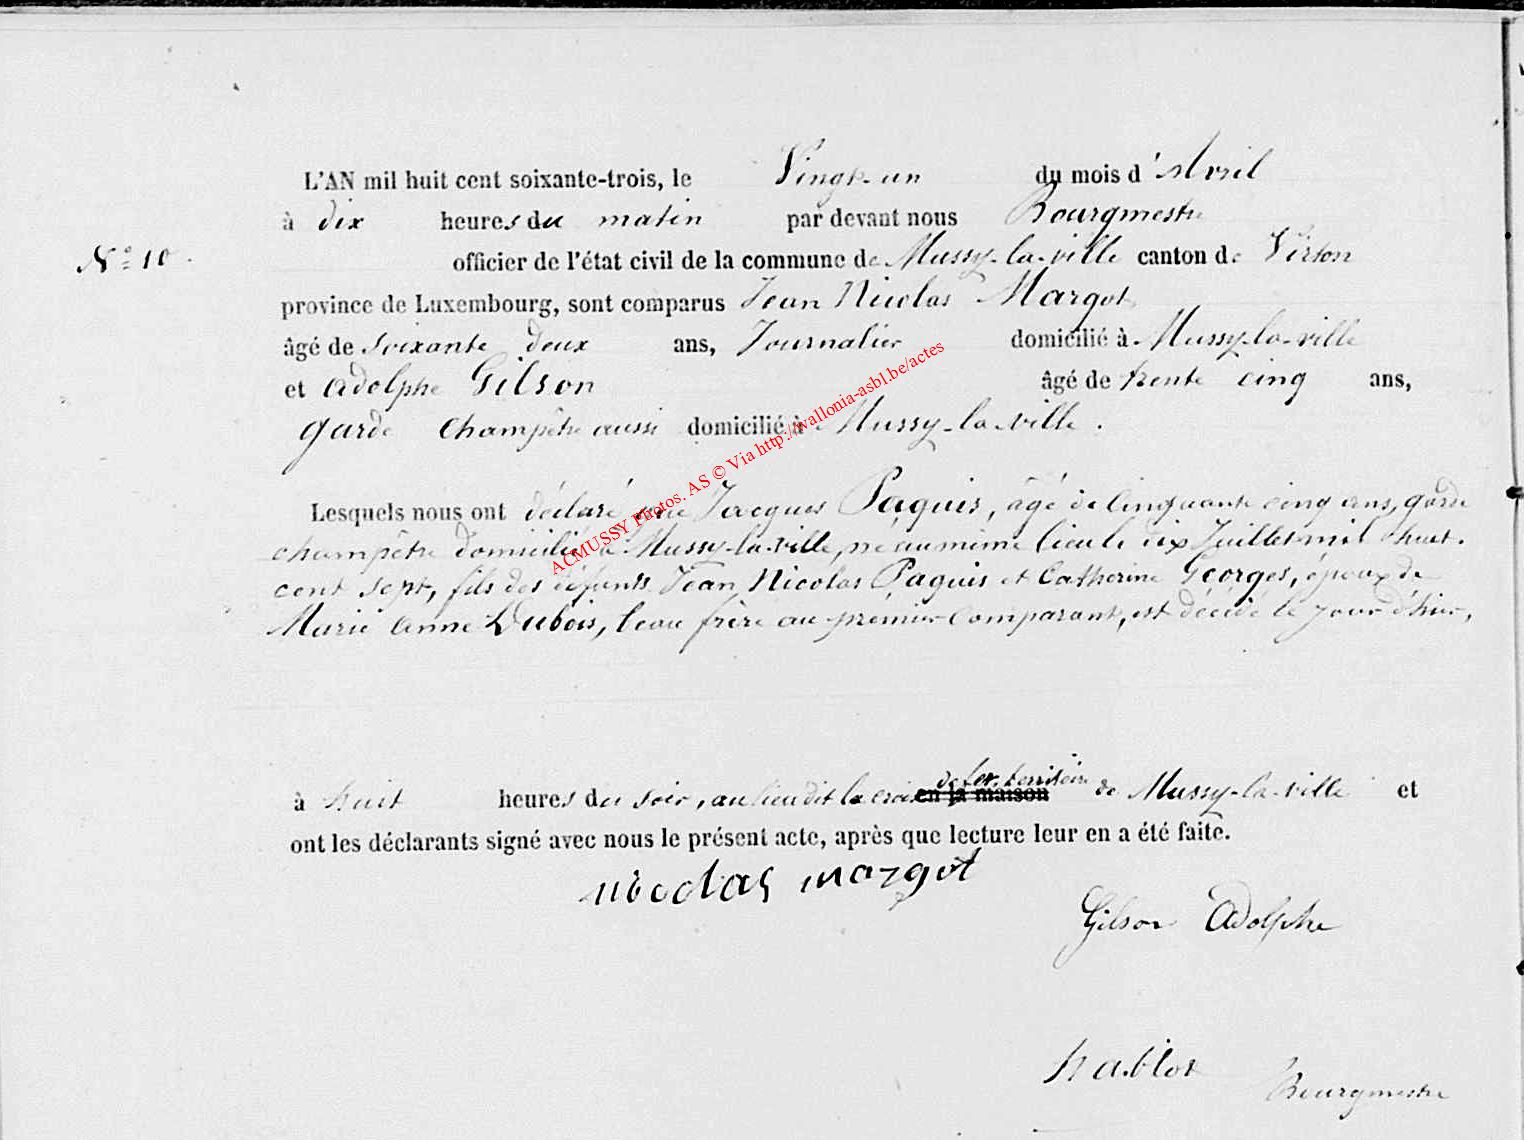 L'AN mil huit cent soixante-trois, le Vingt-un du mois d'Avril
à dix heures du matin par devant nous Bourgmestre
N° 10.
officier de l'état civil de la commune de Mussy-la-ville canton de Virton
province de Luxembourg, sont comparus Jean Nicolas Margot
âgé de soixante deux ans, Journalier domicilié à Mussy-la-ville
et Adolphe Gilson âgé de trente cinq ans,
garde champêtre aussi domicilié à Mussy-la-ville.
Lesquels nous ont déclaré que Jacques Paquis, âgé de Cinquante cinq ans, garde
champêtre domicilié à Mussy-la-ville, né au même lieu le dix Juillet mil huit
cent sept, fils des défunts Jean Nicolas Paquis et Catherine Georges, époux de
Marie Anne Dubois, beau frère au premier Comparant, est décédé le jour d'hier,
de fer, territoire
à huit heures du soir, au lieu dit la croix en la maison de Mussy-la-ville et
ont les déclarants signé avec nous le présent acte, après que lecture leur en a été faite.
nicolas margot
Gilson Adolphe
hablot Bourgmestre
ACMUSSY Photos. AS © Via http://wallonia-asbl.be/actes